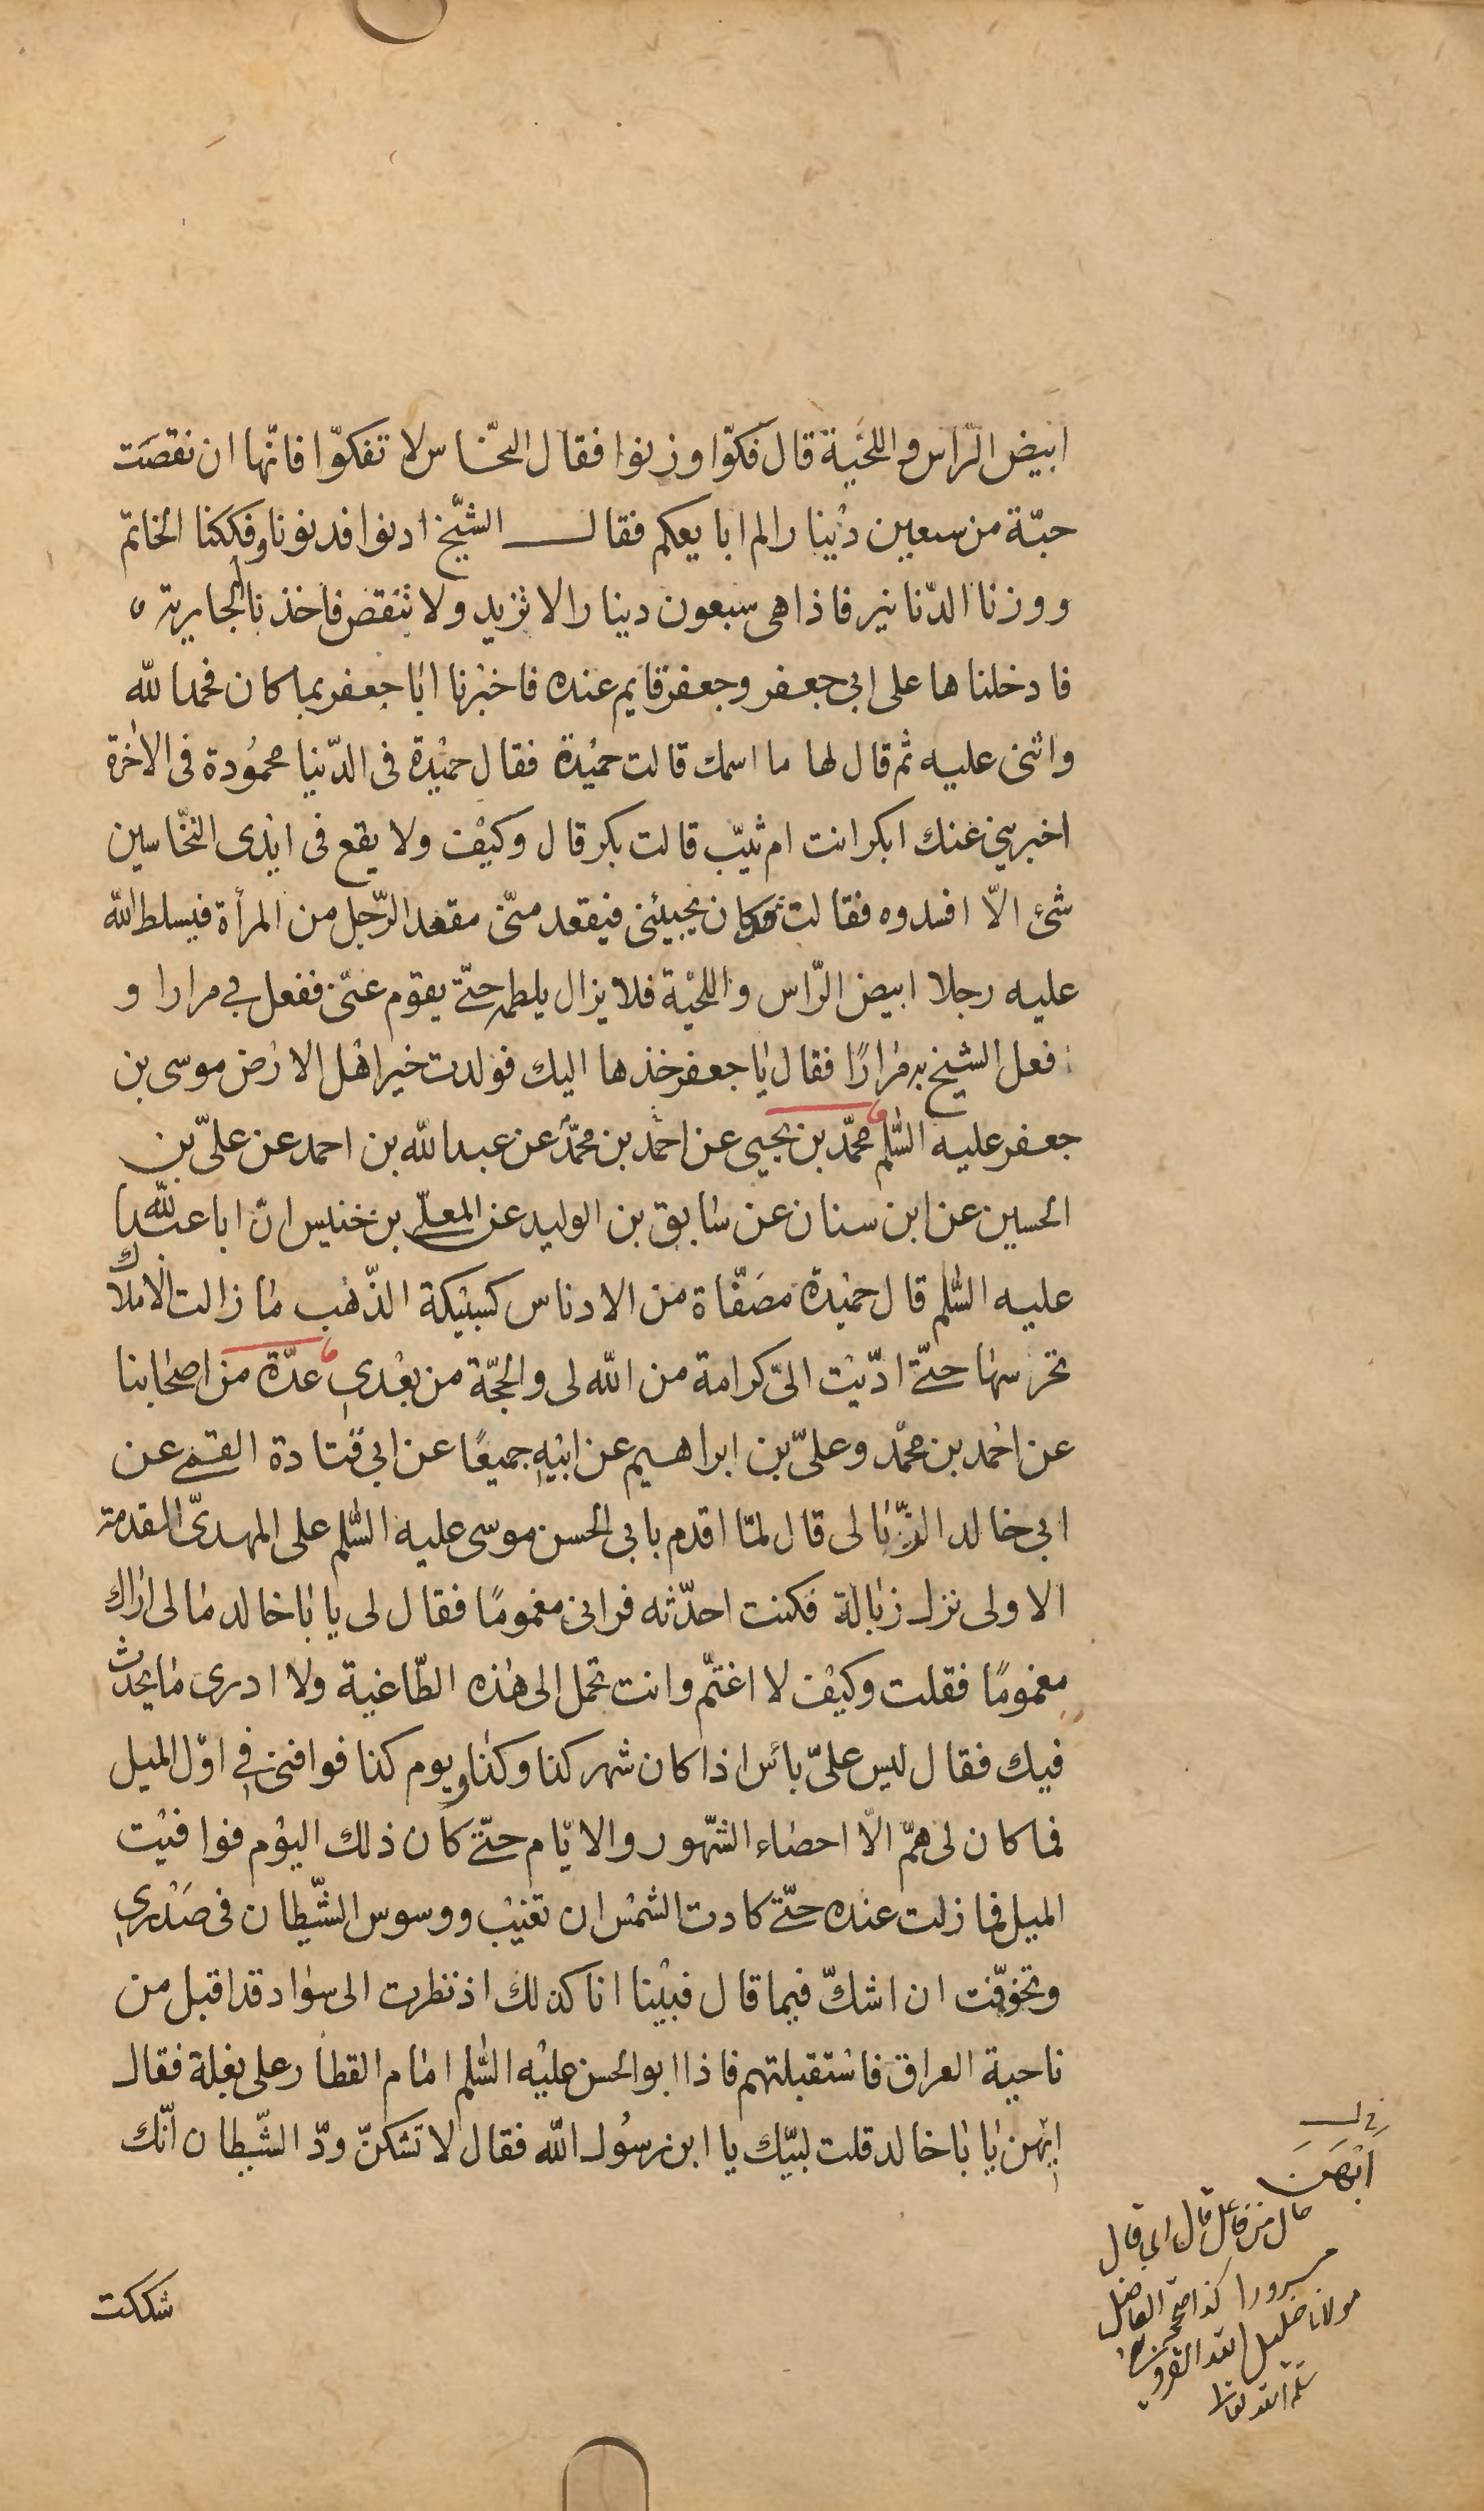 ابيض الرّاس واللحْية قال فكوّا وزنوا فقال النخّاس لا تفكوّا فانّها ان نقصَت
حبّة من سبعين دْينارا لم ابايعكم فقال الشّيخ ادنوا فدنونا وفككنا الخاتم
ووزنا الدّنانير فاذا هى سبعون دينارا لا تزيد ولا تنقص فاخذنا الجارية
فادخلناها على ابى جعفر وجعفر قايم عنده فاخبرنا ابا جعفر بما كان فحمد الله
واثنى عليه ثم قال لها ما اسمك قالت حميْدة فقال حميْدة فى الدّنيا محموُدة فى الاخرة
اخبرينى عنك ابكر انت ام ثيّب قالت بكر قال وكيْف ولا يقع فى ايْدى النخّاسين
شئ الّا افسدوه فقالت قد كان يجيئنى فيقعد منّى مقعد الرّجل من المرأة فيسلط الله
عليه رجلا ابيض الرّاس واللحْية فلا يزال يلطمه حتّى يقوم عنّى ففعل بى مرارا و
فعل الشيخ به مرارًا فقال يا جعفر خذها اليك فولدت خير اهْل الارض موسى بن
جعفر عليه السّلم محمّد بن يحيى عن احْمد بن محمّد عن عبد الله بن احمد عن علىّ بن
الحسين عن ابن سنان عن سابق بن الوليد عن المعلّى بن خنيس انّ ابا عبد الله
عليه السّلم قال حميْدة مصَفّاة من الادناس كسبيْكة الذّهب ما زالت الاملاك
تحرسها حتّى ادّيْت الىّ كرامة من الله لى والحجّة من بعْدى عدّة من اصْحابنا
عن احْمد بن محمّد وعلىّ بن ابراهيم عن ابيْه جميعًا عن ابى قتادة القمى عن
ابى خالد الزّبالى قال لمّا اقدم بابى الحسن موسى عليه السّلم على المهدىّ القدمة
الاولى نزل زبالة فكنت احدّثه فرانى مغمومًا فقال لى يا باخالد ما لى اراك
مغمومًا فقلت وكيْف لا اغتمّ وانت تحمل الى هذه الطّاغية ولا ادرى ما يحدث
فيك فقال ليس علىّ باس اذا كان شهر كذا وكذا ويوم كذا فوافنى فى اوّل الميل
فما كان لى همّ الّا احصاء الشّهور والايّام حتّى كان ذلك اليوْم فوافيْت
الميل فما زلت عنده حتّى كادت الشمْس ان تغيْب ووسوس الشّيطان فى صَدْرى
وتخوّفت ان اشكّ فيما قال فبيْنا انا كذلك اذ نظرت الى سواد قد اقبل من
ناحية العراق فاسْتقبلتهم فاذا ابو الحسن عليْه السّلم امام القطار على بغلة فقال
ايْهن يا باخالد قلت لبيّك يا ابن رسُول الله فقال لا تشكنّ ودّ الشّيطان انّك
شككت
ايْهَن
حال من فاعل قال اى قال
مسرورا كذا صححه الفاضل
مولانا خليل الله القزوينى
سلمه الله تعالى